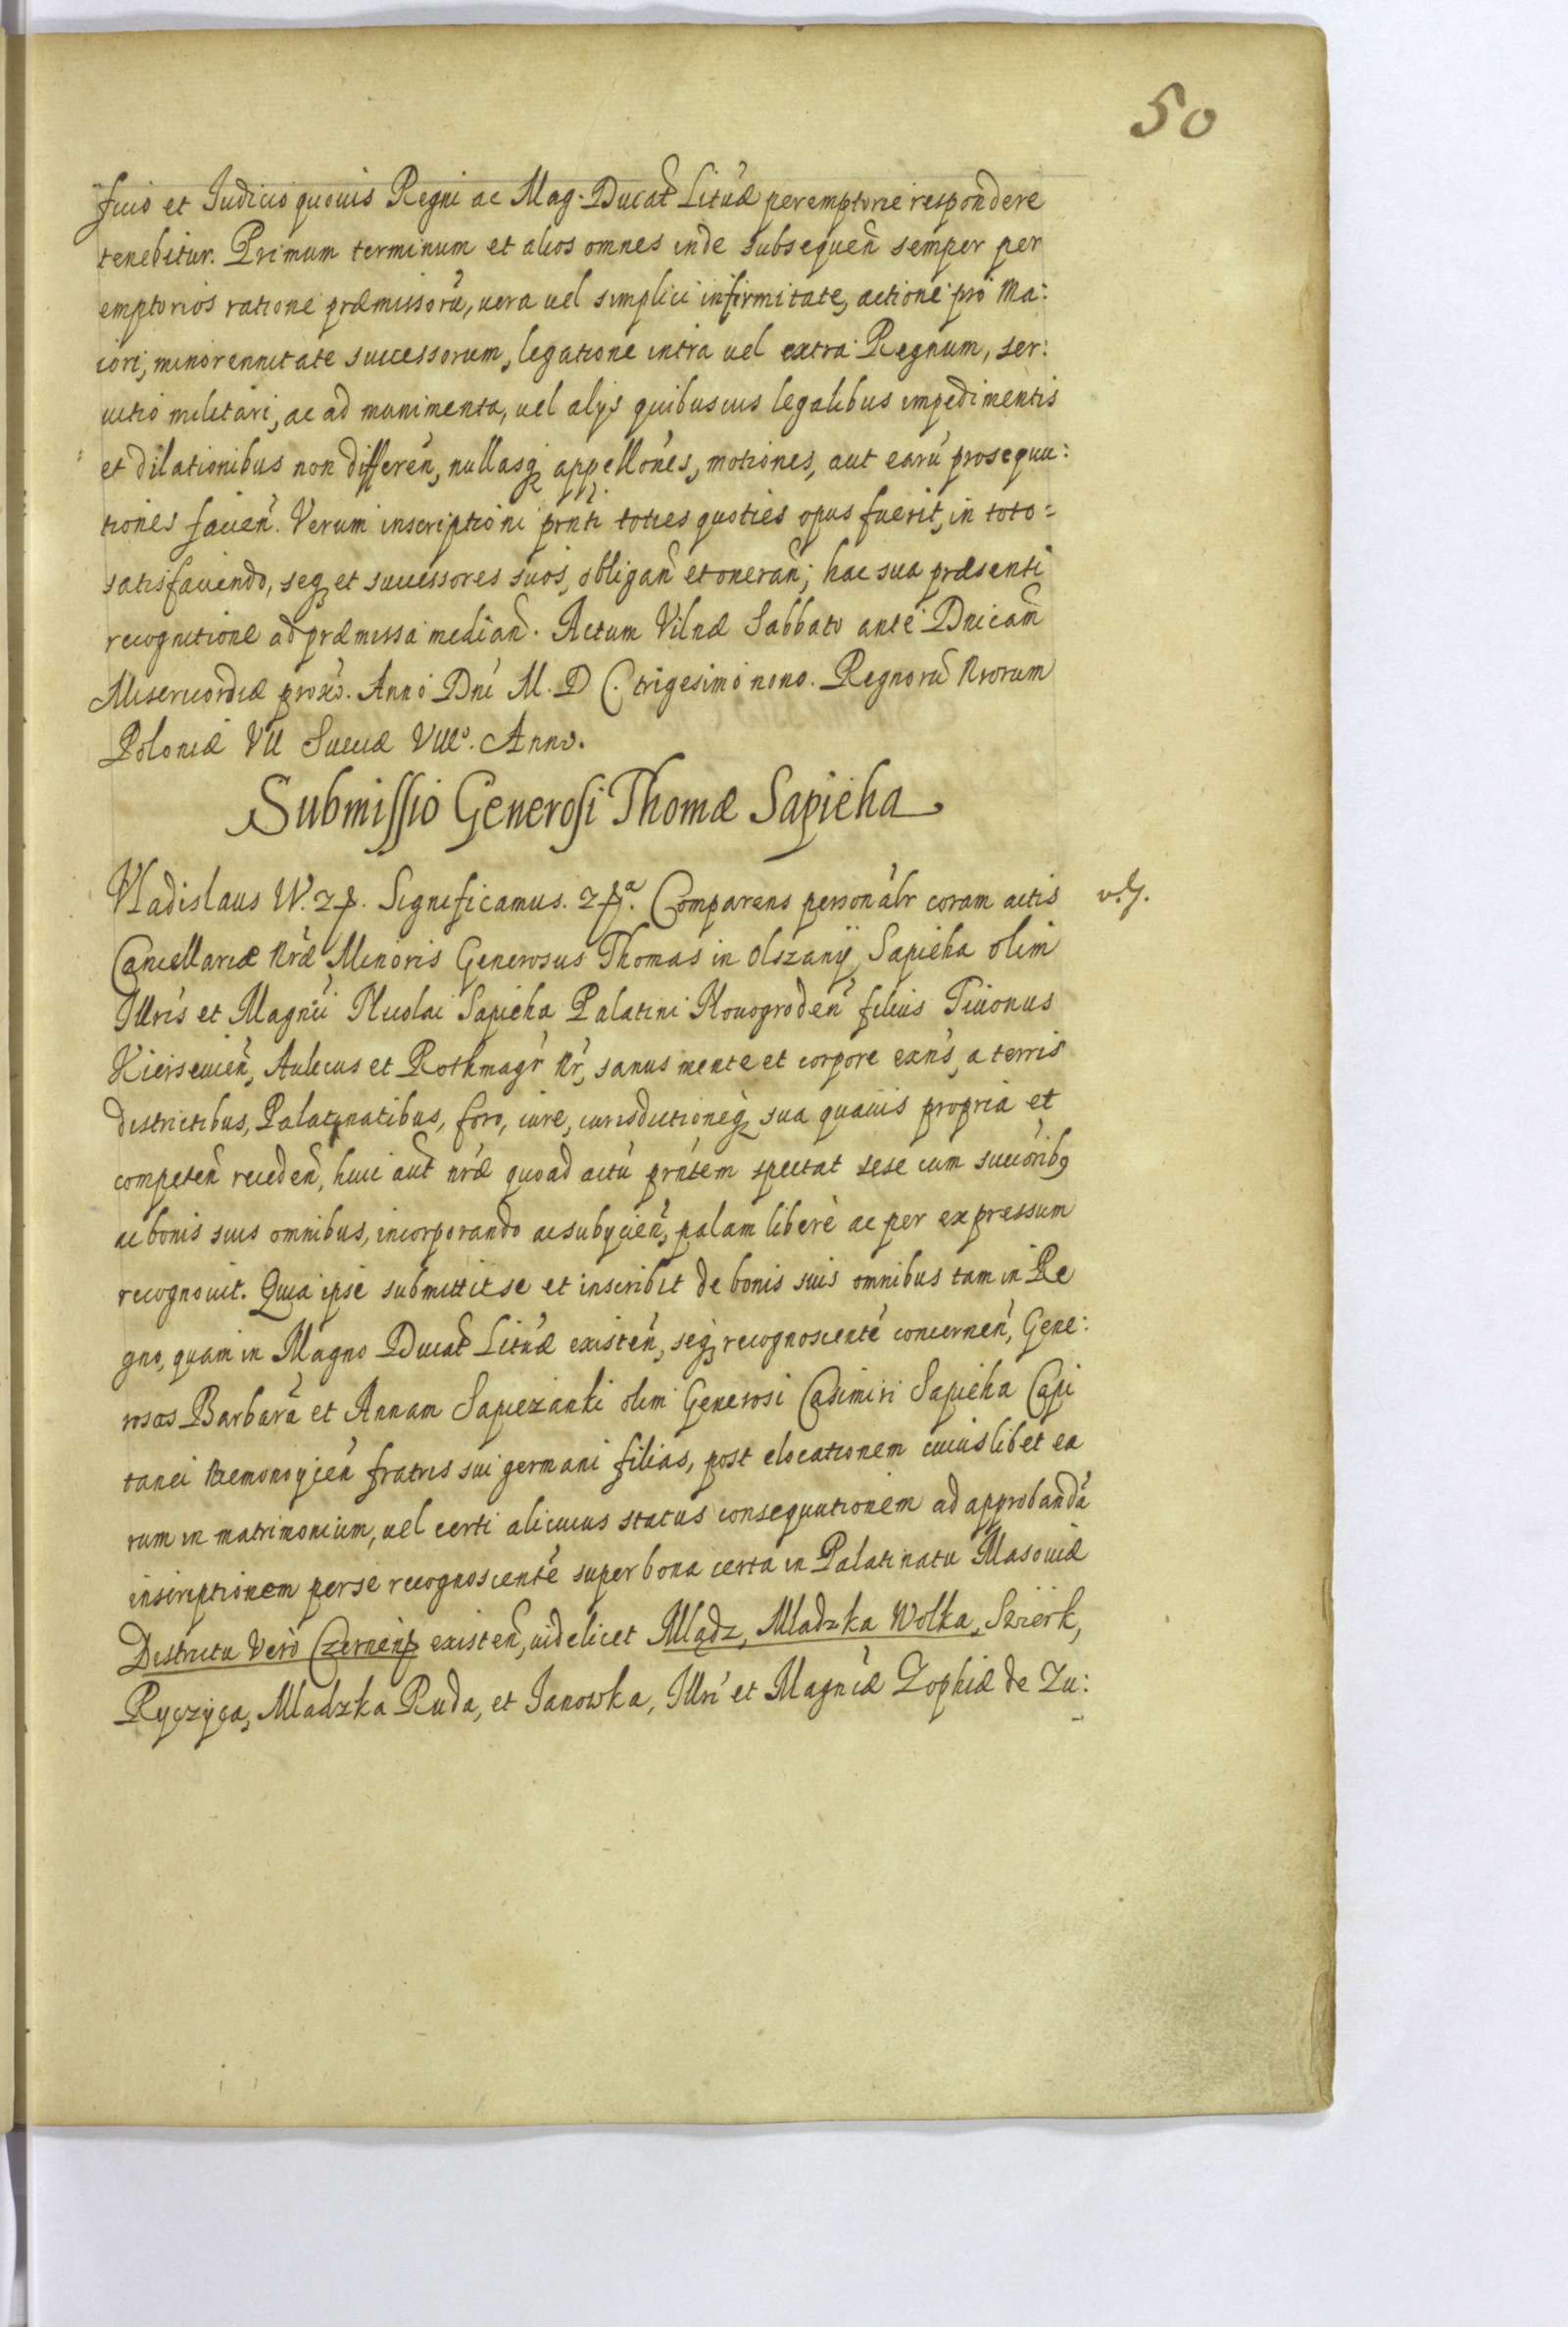 50
ficio et Iudicio quouis Regni ac Mag. Ducat Lituæ peremptorie respondere
tenebitur. Primum terminum et alios omnes inde subsequen̄ semper per
emptorios ratione præmissorū, uera uel simplici infirmitate, actione pro ma:
iori, minorennitate successorum, legatione intra uel extra Regnum, ser:
uitio militari, ac ad munimenta, uel alijs quibusuis legalibus impedimentis
et dilationibus non differen̄, nullasq appellōnes, motiones, aut earū prosequu:
tiones facien̄. Verum inscriptioni prn̄ti toties quoties opus fuerit, in toto =
satisfaciendo, seq et successores suos, obligan̄ et oneran̄; hac sua præsenti
recognitione ad præmissa median̄. Actum Vilnæ Sabbato ante Dnicam
Misericordiæ prox̄. Anno Dn̄i M. D C. trigesimo nono. Regnorū Nrorum
Poloniæ VII Sueciæ VIIIo. Anno.
Submissio Generosi Thomæ Sapieha
Vladislaus IV. Significamus. Comparens personālr coram actis v. g.
Cancellariæ Nrǣ Minoris Generosus Thomas in Olszany Sapieha olim
Illrīs et Magn̄ci Nicolai Sapieha Palatini Nouogroden̄ filius Tiuonus
Aulicus et Rothmagr̄ Nr̄, sanus mente et corpore exn̄s, a terris
districtibus, Palatinatibus, foro, iure, iurisdictioneq sua quauis propria et
competen̄ receden̄, huic aut̄ nrǣ quoad actū prn̄tem spectat sese cum succōribq
ac bonis suis omnibus, incorporando ac subijcien̄, palam liberè ac per expressum
recognouit. Quia ipse submittit se et inscribit de bonis suis omnibus tam in Re
gno, quam in Magno Ducat̄ Lituæ existen̄, seq recognoscentē concernen̄, Gene:
rosas Barbarā et Annam Sapiezanki olim Generosi Casimiri Sapieha Capi
tanei fratris sui germani filias, post elocationem cuiuslibet ea
rum in matrimonium, uel certi alicuius status consequutionem ad approbandā
inscriptionem per se recognoscentē super bona certa in Palatinatu Masouiæ
Districtu Vero Czernen existen̄, uidelicet Mlądz, Mladzka Wolka, Swierk,
Ryczyca, Mladzka Ruda, et Janowka, Illri et Magn̄cæ Zophiæ de Zu: